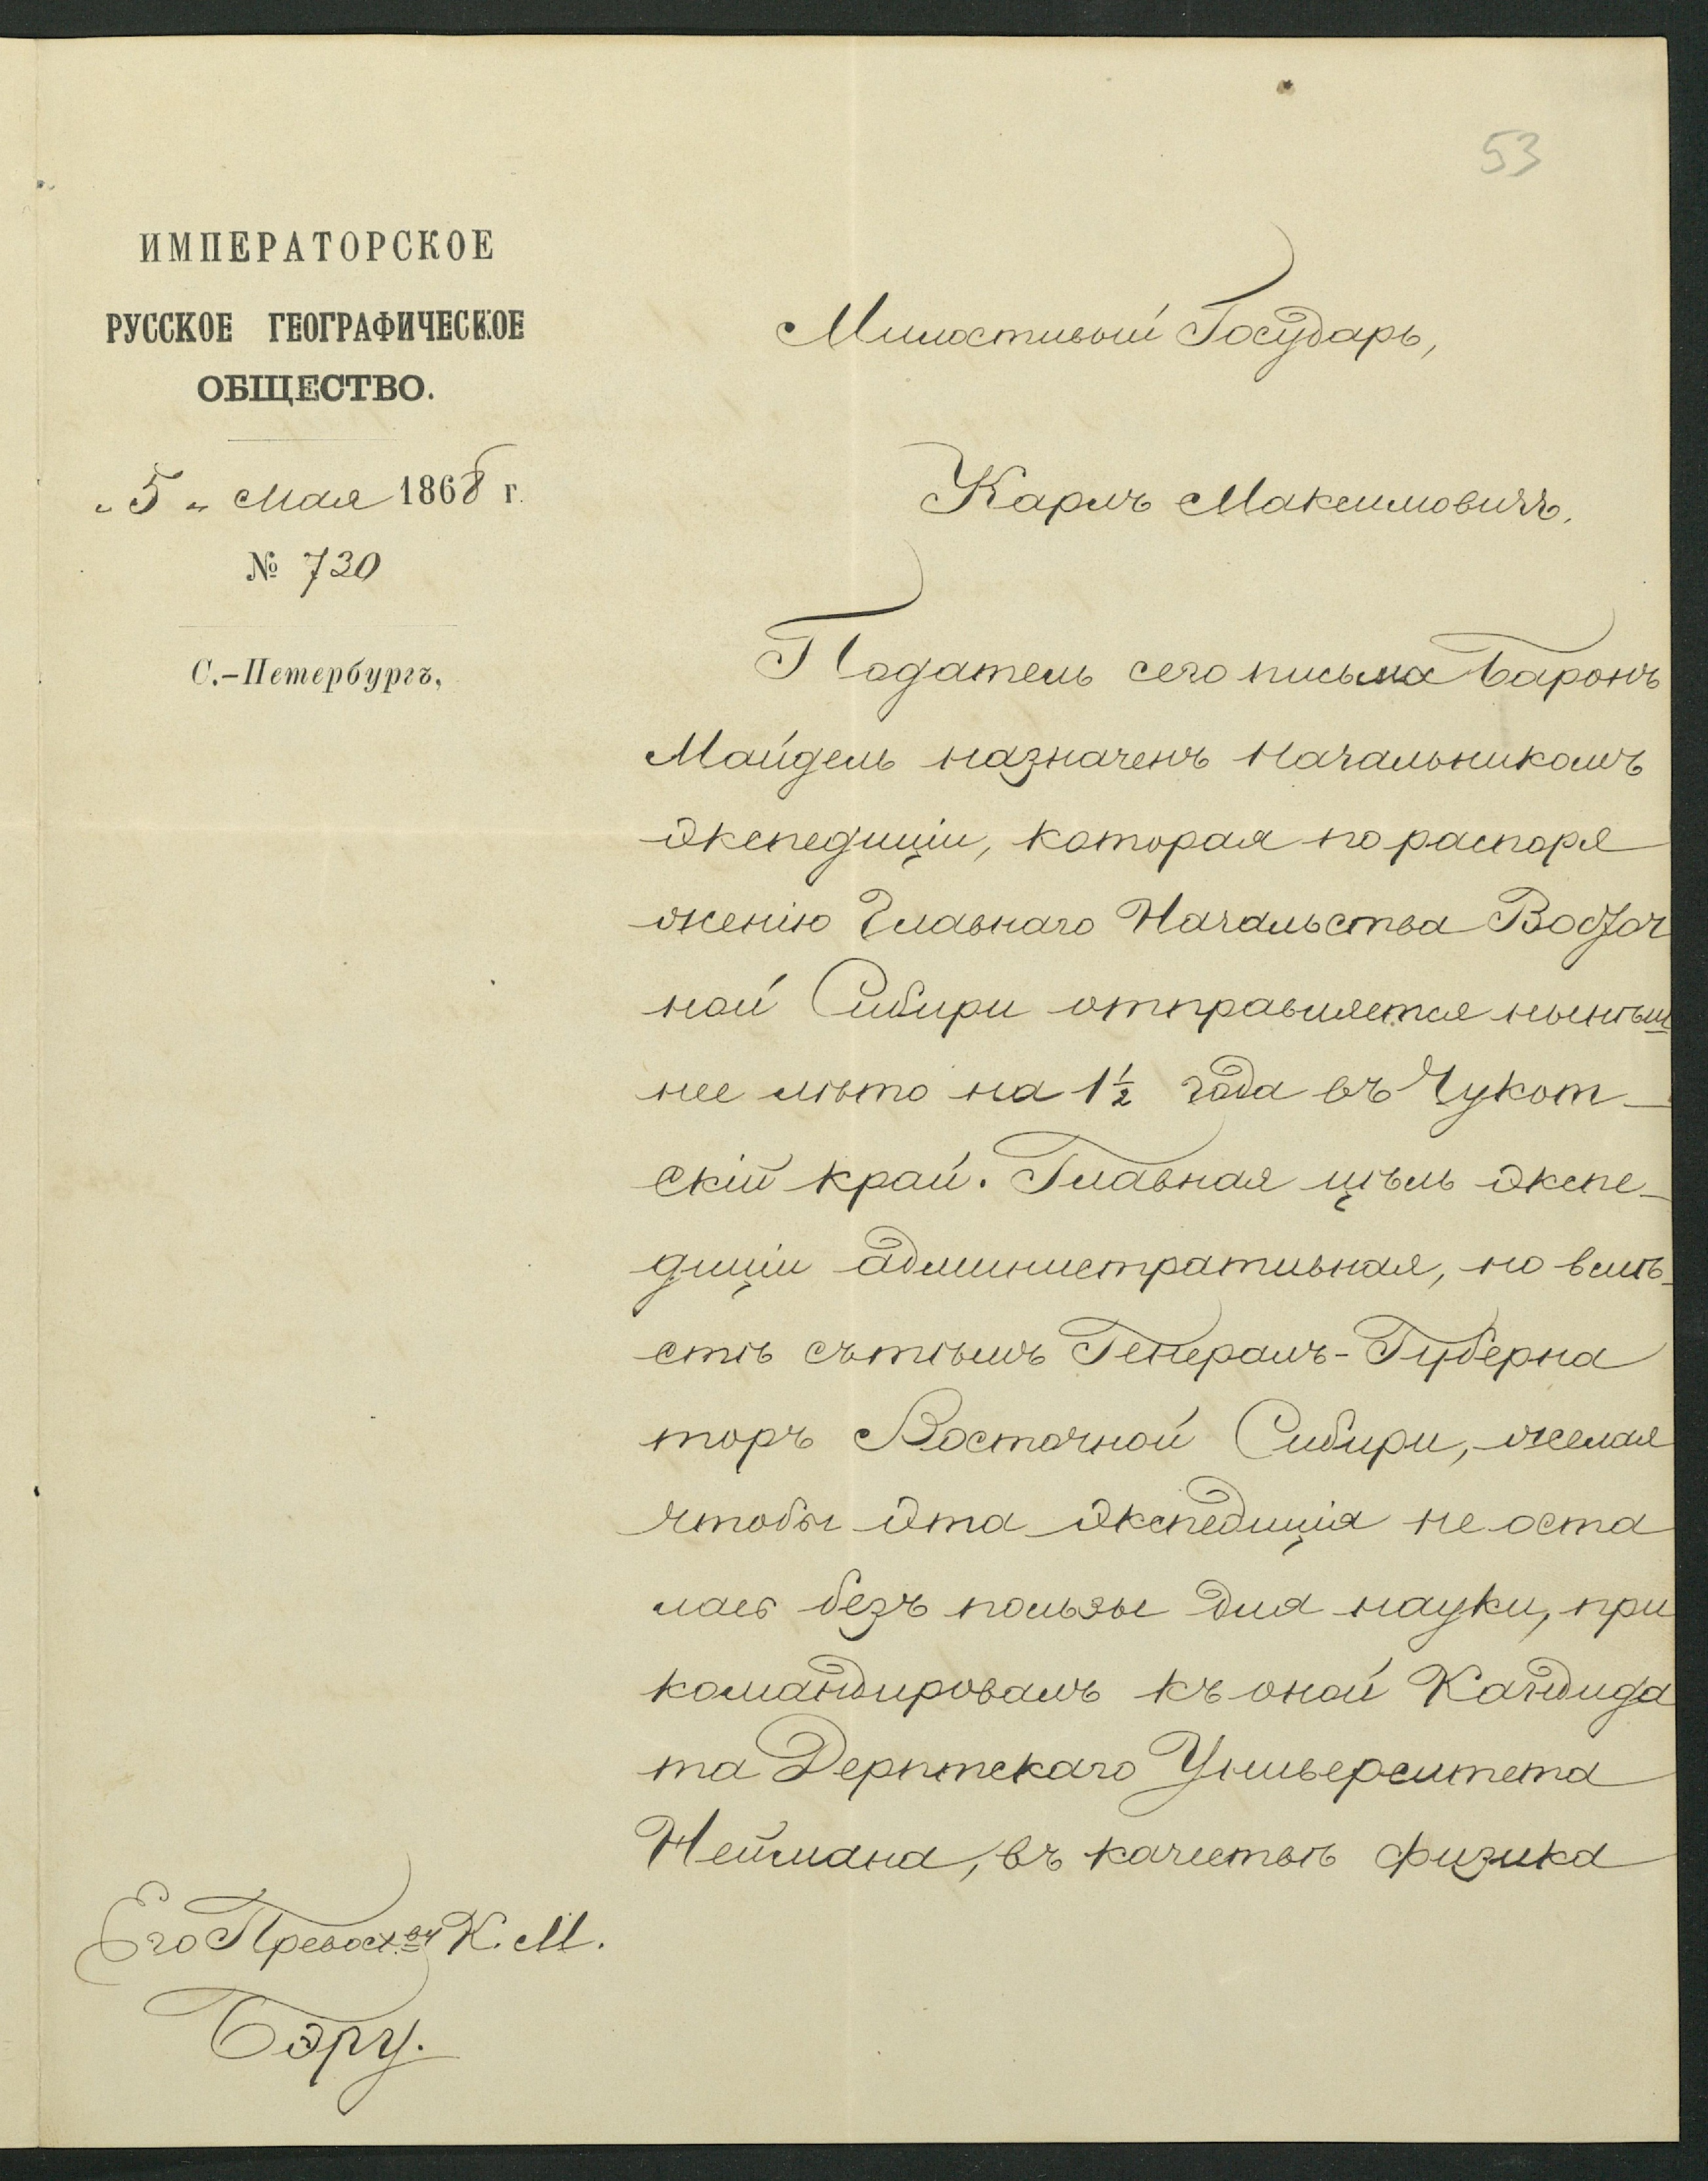 53
ИМПЕРАТОРСКОЕ
РУССКОЕ ГЕОГРАФИЧЕСКОЕ
ОБЩЕСТВО.
„5„ Мая 1868 г.
№ 730
С.-Петербургъ,
Милостивый Государь,
Карлъ Максимовичъ.
Податель сего письма Баронъ
Майдель назначенъ Начальникомъ
экспедиціи, которая по распоря
женію Главнаго Начальства Восточ
ной Сибири отправляется нынѣш
нее лѣто на 1½ года въ Чукот-
скій край. Главная цѣль экспе-
диціи административная, но вмѣ-
стѣ съ тѣмъ Генералъ-Губерна
торъ Восточной Сибири, желая
чтобы эта экспедиція не оста
лась безъ пользы для науки, при
командировалъ къ оной Кандида
та Дерптскаго Университета
Неймана, въ качествѣ физика
Его Превосх.ву К. М.
Бэру.